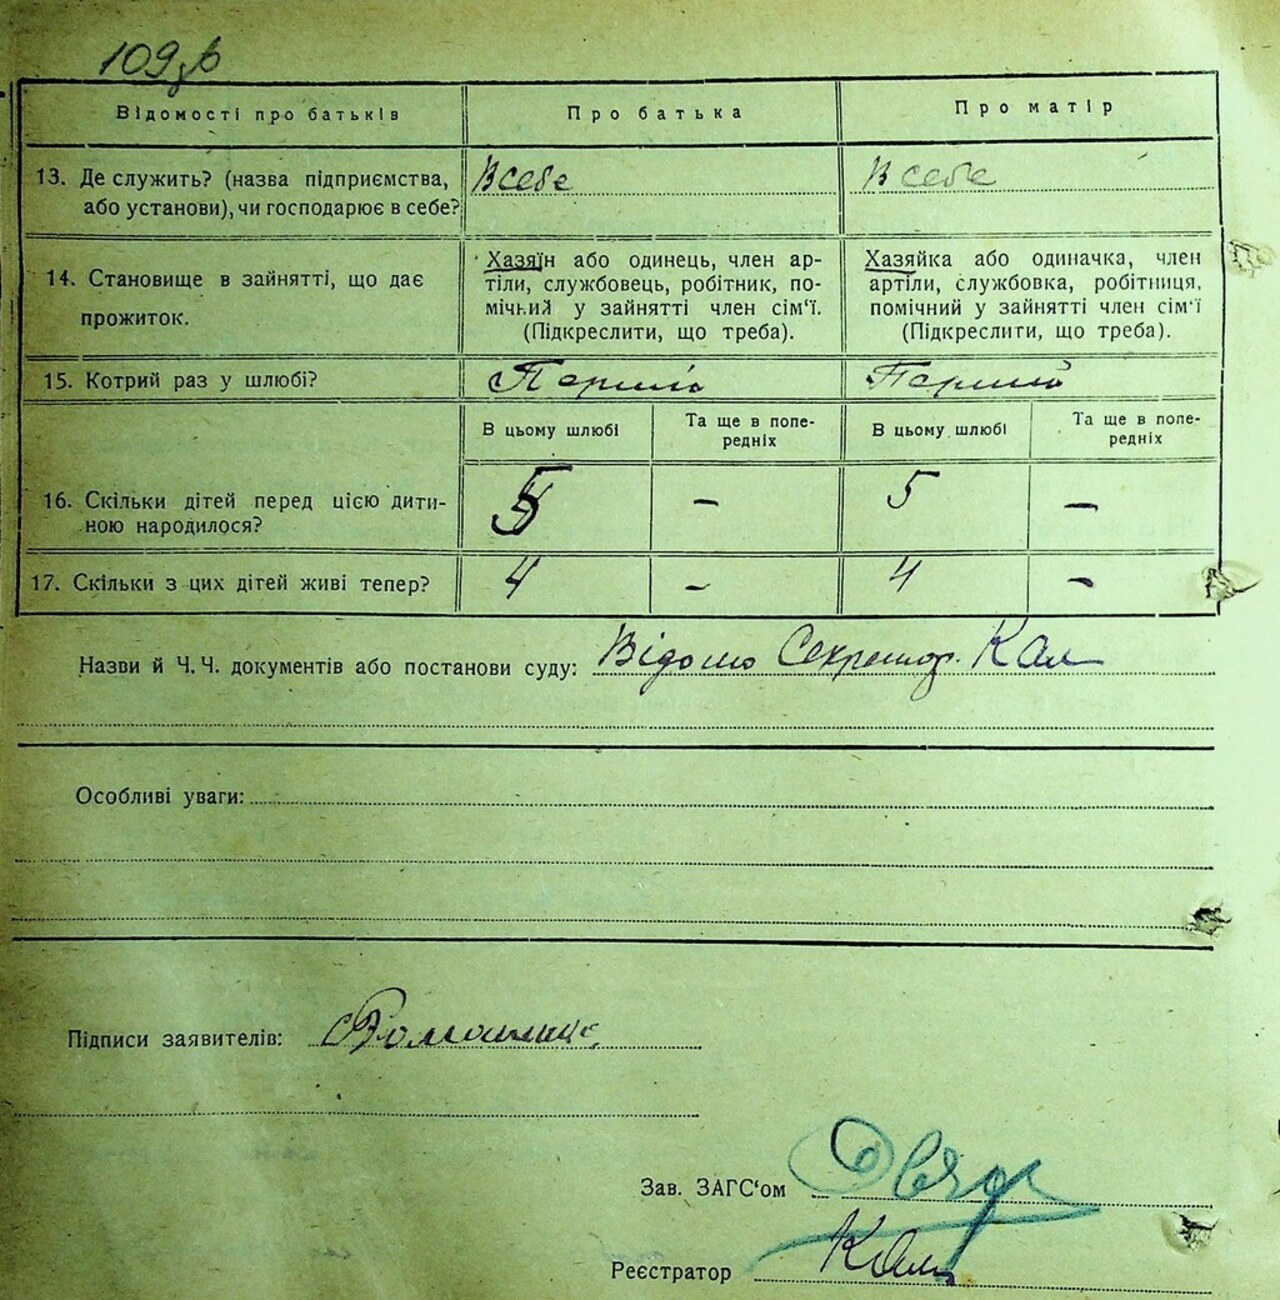 109зв
Відомості про батьків Про батька Про матір
13. Де служить? (назва підприємства, або установи), чи господарює в себе? В себе В себе
14. Становище в зайнятті, що дає прожиток.
Хазяїн або одинець, член ар-
тіли, службовець, робітник, по-
мічний у зайнятті член сім'ї.
(Підкреслити, що треба).
Хазяйка або одиначка, член
артіли, службовка, робітниця,
помічний у зайнятті член сім'ї
(Підкреслити, що треба).
15. Котрий раз у шлюбі? Перший
В цьому шлюбі Та ще в попе-
редніх В цьому шлюбі Та ще в попе-
редніх
16. Скільки дітей перед цією дити-
ною народилося? 5 – 5 –
17. Скільки з цих дітей живі тепер? 4 – 4 –
Назви й Ч.Ч. документів або постанови суду: Відомо Секретар.
Особливі уваги:
Підписи заявителів:
Зав. ЗАГС'ом
Реєстратор